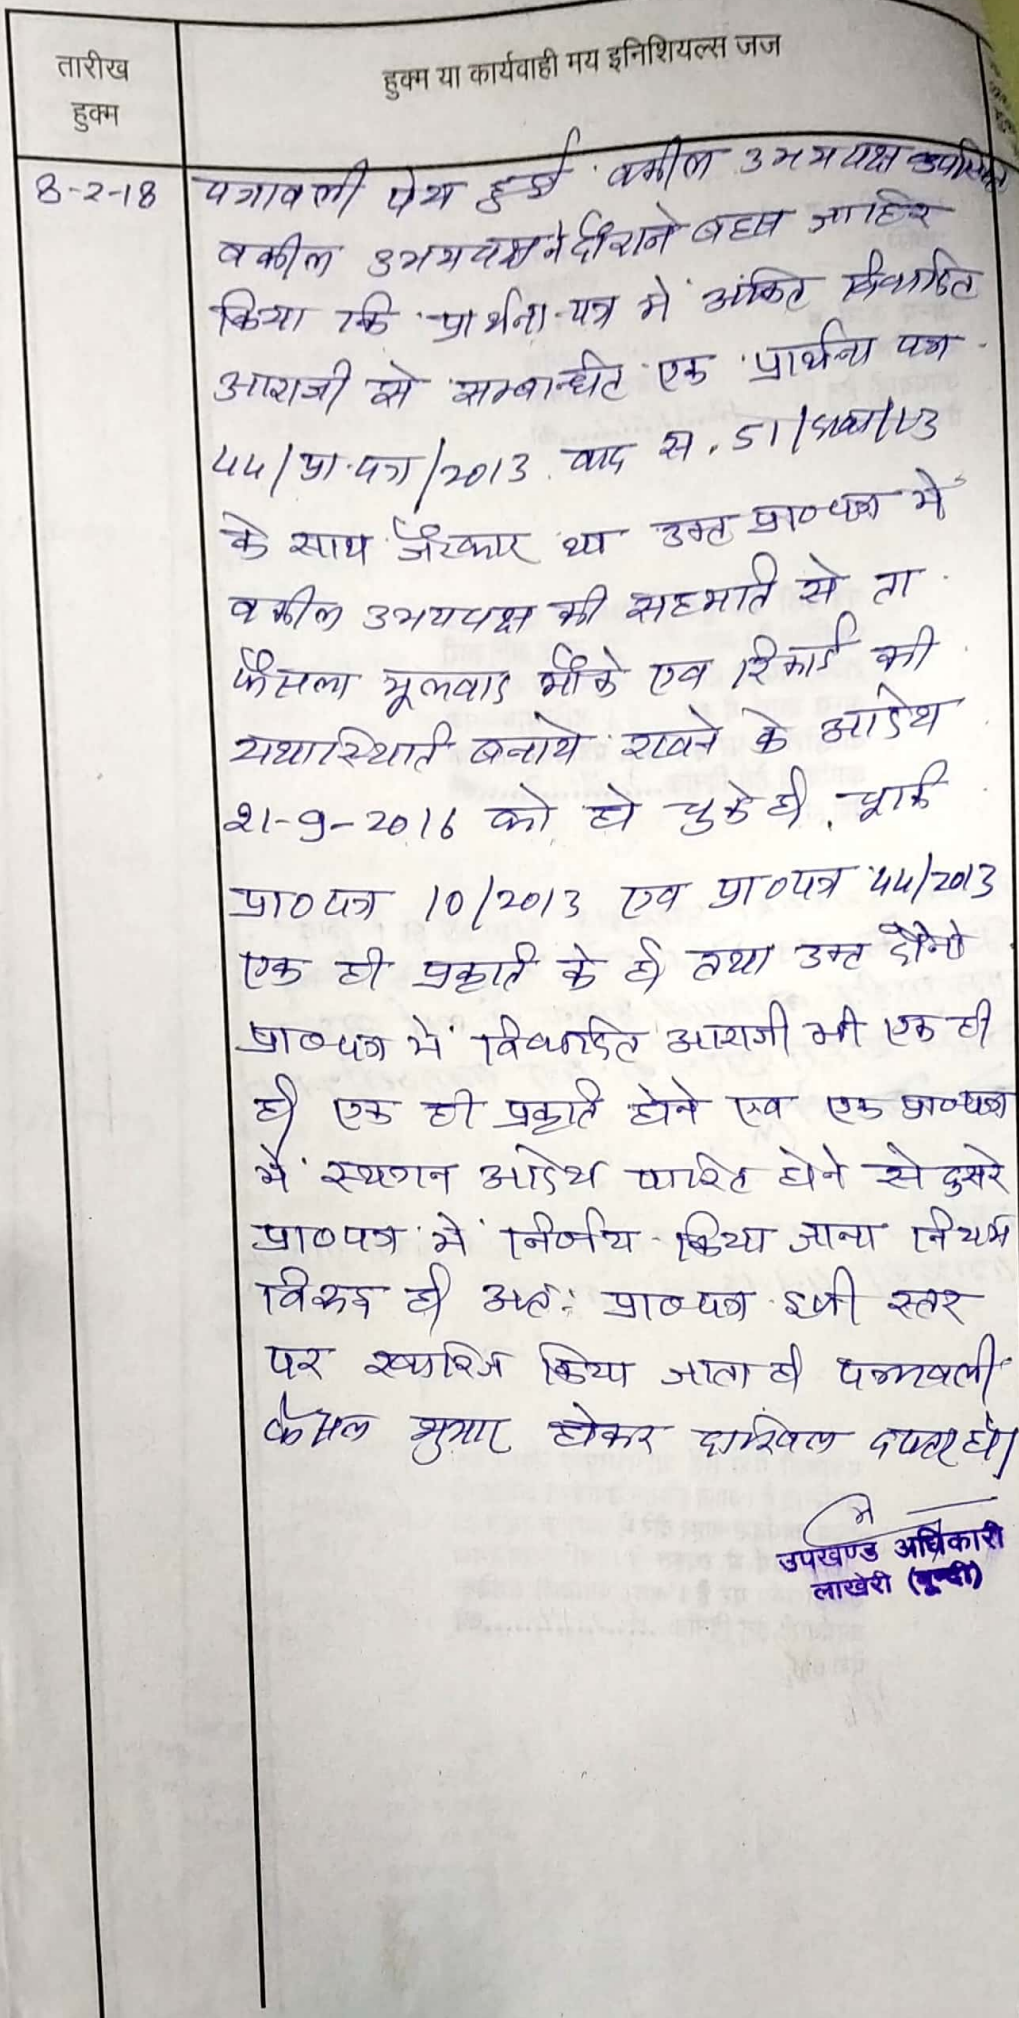 तारीख
हुक्म
हुक्म या कार्यवाही मय इनिशियल्स जज
8-2-18
पत्रावली पेश हुई . वकील उभयपक्ष उपस्थित
वकील उभयपक्ष ने दौराने बहस जाहिर
किया कि प्रार्थना-पत्र में अंकित विवादित
आराजी से सम्बन्धित एक प्रार्थना पत्र
44/प्रा.पत्र/2013 वाद स. 51/दावा/13
के साथ जैरकार था उक्त प्रा०पत्र में
वकील उभयपक्ष की सहमति से ता
फैसला मूलवाद मौके एव रिकार्ड की
यथास्थिति बनाये रखने के आदेश
21-9-2016 को हो चुके है, चूकि
प्रा० पत्र 10/2013 एव प्रा०पत्र 44/2013
एक ही प्रकृति के है तथा उक्त दोनो
प्रा०पत्र में विवादित आराजी भी एक ही
है एक ही प्रकृति होने एव एक प्रा०पत्र
में स्थगन आदेश पारित होने से दुसरे
प्रा०पत्र में निर्णय किया जाना नियम
विरुद्ध है अत: प्रा०पत्र इसी स्तर
पर खारिज किया जाता है पत्रावली
फैसल शुमार होकर दाखिल दफ्तर हो।
उपखण्ड अधिकारी
लाखेरी (बून्दी)